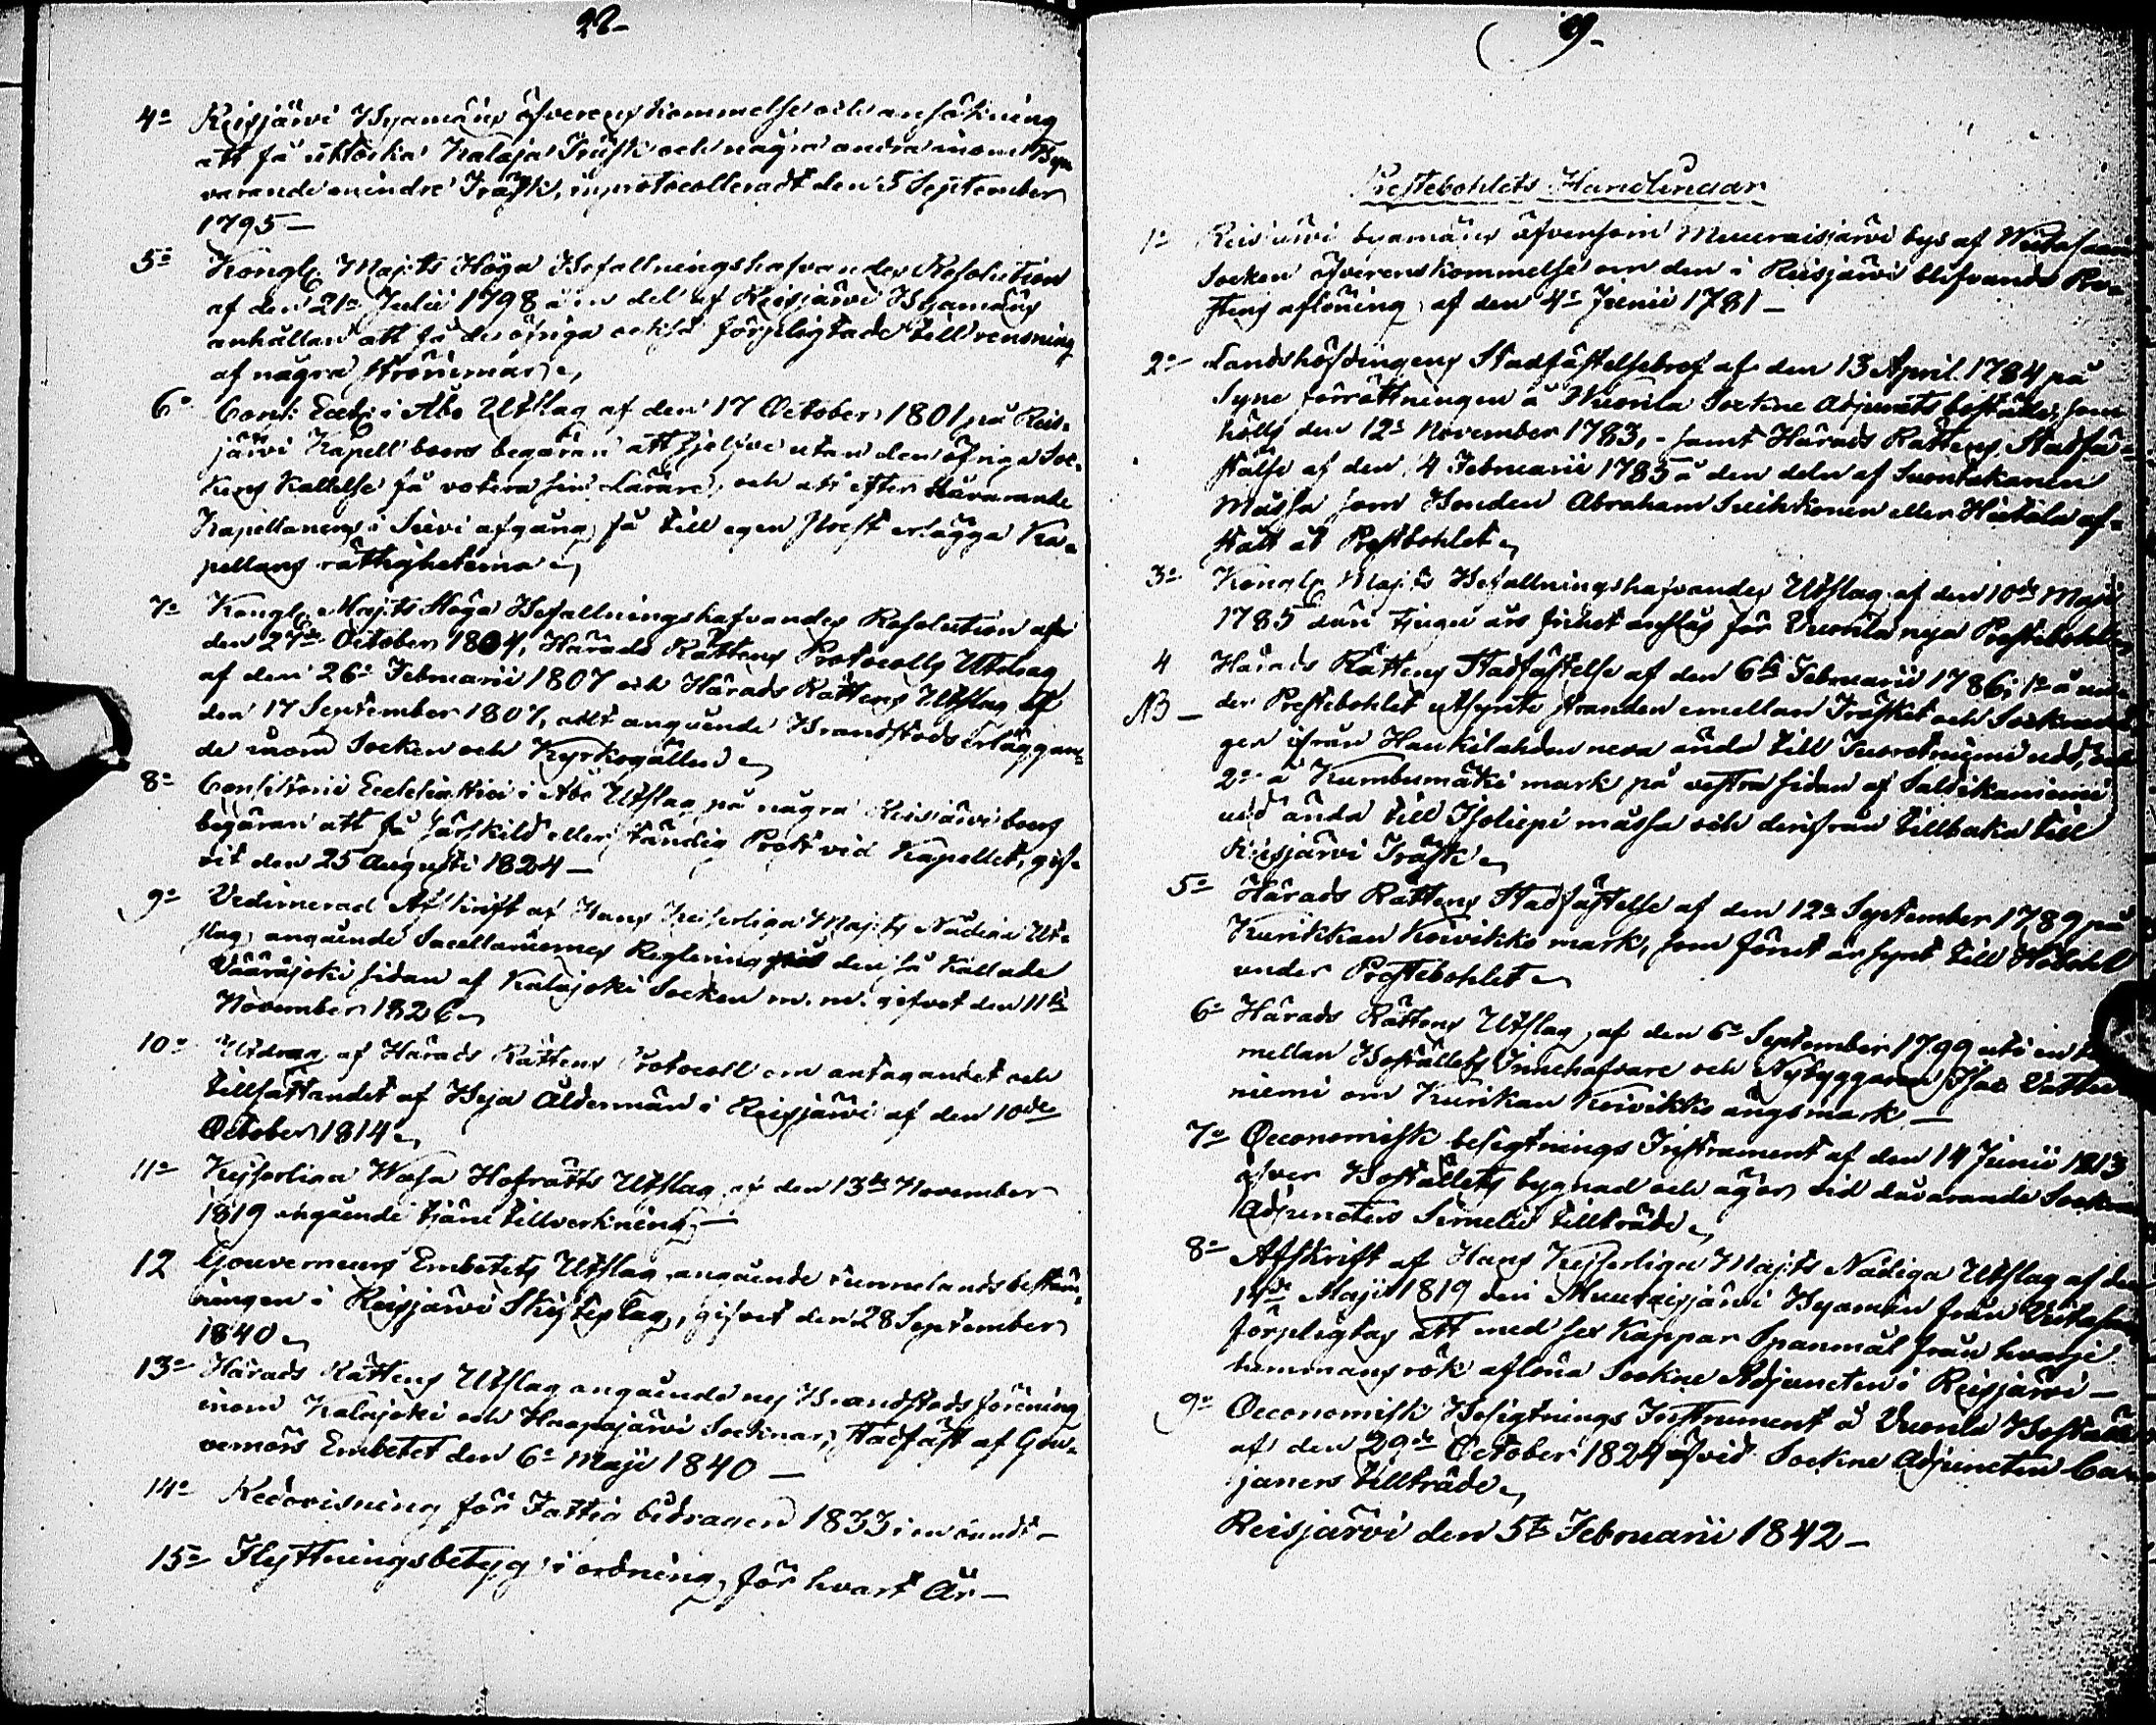 22-
4o Reisjärvi Byamäns öfverenskommelse och ansökning
att få uttorka Kalaja Träsk och några andra inom Byn
varande mindre Träsk, inprotocolleradt den 5 September
1795 -
5o Kongl. Maj:ts Höga Befallningshafvandes Resolution
af den 21a Julii 1798 å en del af Reisjärvi Byamäns
anhållan att få de öfriga också förpligtade till rensning
af några strömmar
6o Cons: Eccl: i Åbo Utslag af den 17 October 1801 på Reis-
järvi Kapellboers begäran att sjelfve utan den öfriga Soc-
kens Kallelse få votera sin Lärare, och att efter davarande
Kapellanens i Sievi afgång få till egen Prest erlägga Ka-
pellans rättigheterna
7o Kongl. Maj:ts Höga Befallningshafvandes Resolution af
den 27de October 1804, Härads Rättens Protocolls Utdrag
af den 26o Februarii 1807 och Härads Rättens Utslag af
den 17 September 1807, allt angående Brandstods erläggan-
de inom Socken och Kyrkogället
8o Consistorii Ecclesiastici i Åbo Utslag på några Reisjärviboers
begäran att få särskild eller ständig Prest vid Kapellet, gif-
vit den 25 Augusti 1824 -
9o Vedimerad Afskrift af Hans Keiserliga Maj:ts Nådiga Ut-
slag angående Sacellaniernes Reglering på den så kallade
Vääräjoki sidan af Kalajoki Socken m. m. gifvet den 11te
November 1826
10o Utdrag af Härads Rättens Protocoll om antagandet och
tillsättandet af Bya Åldermän i Reisjärvi af den 10de
October 1814
11o Kejserliga Wasa Hofrätts Utslag af den 13de November
1819 angående tjäru tillverkning -
12 Gouverneurs Embetets Utslag angående rumelandsbestäm-
ningen i Reisjärvi Skifteslag, gifvet den 28 September
1840
13o Härads Rättens Utslag angående ny Brandstods förening
inom Kalajoki och Haapajärvi Socknar, stadfäst af Gou-
vernörs Embetet den 6o Maji 1840 -
14o Redovisning för Fattig bidragen 1833 i en bundt -
15o Flyttningsbetyg i ordning för hvart År -
Prestebohlets Handlingar
1o Reisjärvi byamäns äfvensom Muuraisjärvi bys af Wiitasaari
Socken öfverenskommelse om den i Reisjärvi blifvande Pre-
stens aflöning af den 4de Junii 1781 -
2o Landshöfdingens Stadfästelsebref af den 13 April 1784 på
Syne förrättningen å Wuorila Sockne Adjuncts boställe, som
hölls den 12o November 1783, - samt Härads Rättens Stadfä-
stelse af den 4 Februarii 1785 å den deln af Suontakanen
Mässa som Bonden Abraham eller Hietala af-
stått åt Prestbohlet
3o Kongl. Maj:ts Befallningshafvandes Utslag af den 10de Maji
1785 den tjugu års frihet anslås för Vuorila nya Prestebohle
4 Härads Rättens Stadfästelse af den 6te Februarii 1786, 1o å un-
NB - der Prestebohlet utsynte stranden emellan Träsket och
gen ifrån Haukilahden neva ända till udd, och
2o å Kumbumäki mark på vestra sidan af Saldikaniemi
udd ända till mässa och derifrån tillbaka till
Reisjärvi Träsk
5o Härads Rättens Stadfästelse af den 12o September 1789 på
Kurikkan Koivikko mark, som förut är synt till
under Prestebohlet
6o Härads Rättens Utslag af den 6o September 1799 uti en
mellan Boställets Innehafvare och Nybyggaren Isac
niemi om Kurikan Koivikko ängsmark -
7o Oeconomisk besigtnings Instrument af den 14 Junii 1813
öfver Boställets bygnad och ägor vid davarande Sockne
Adjunctens Simelii tillträde
8o Afskrift af Hans Kejserliga Maj:ts Nådiga Utslag af den
14de Maji 1819 den Muuraisjärvi Byamän från Viitasaari
förpligtas att med sex Kappar Spanmål från hvarje
hemmans rök aflöna Sockne Adjuncten i Reisjärvi -
9o Oeconomisk Besigtnings Instrument å Vuorila Boställe
af den 29de October 1824 vid Sockne Adjuncten
janers tillträde
Reisjärvi den 5te Februarii 1842 -